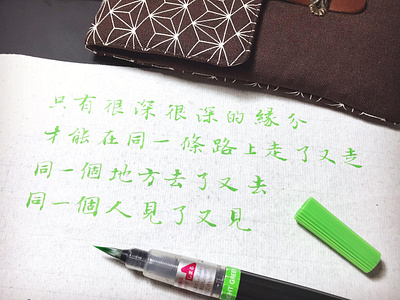 只有很深很深的緣分
才能在同一條路上走了又走
同一個地方去了又去
同一個人見了又見
HT GREEN